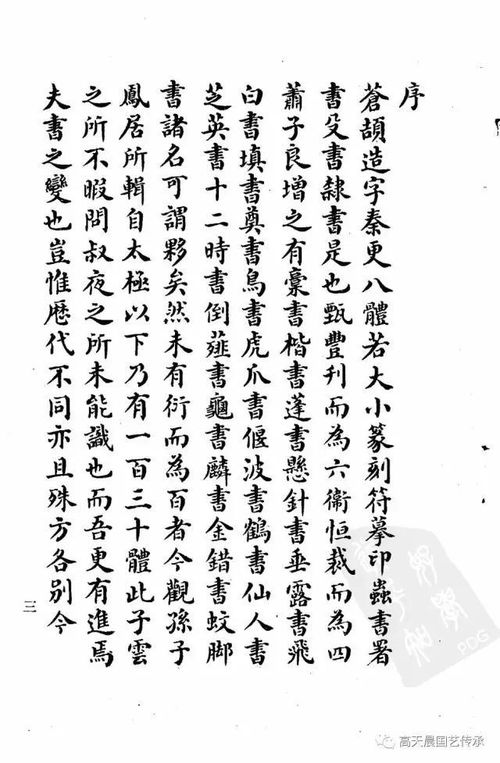 序
蒼頡造字秦更八體若大小篆刻符摹印蟲書署
書殳書隸書是也甄豐刊而為六衞恒裁而為四
蕭子良增之有槀書楷書蓬書懸針書垂露書飛
白書填書奠書鳥書虎爪書偃波書鶴書仙人書
芝英書十二時書倒薤書龜書麟書金錯書蚊脚
書諸名可謂夥矣然未有衍而為百者今觀孫子
鳳居所輯自太極以下乃有一百三十體此子雲
之所不暇問叔夜之所未能識也而吾更有進焉
夫書之變也豈惟歷代不同亦且殊方各別今
三
PDG
高天晨国艺传承